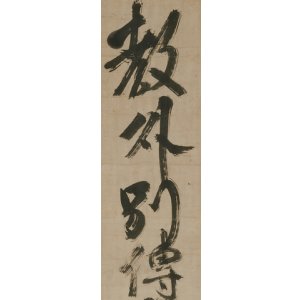 教外別傳